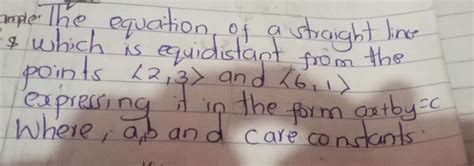 ample: The equation of a straight line
& which is equidistant from the
points <2,3> and <6,1>
expressing it in the form ax+by=c
Where, a,b and c are constants.